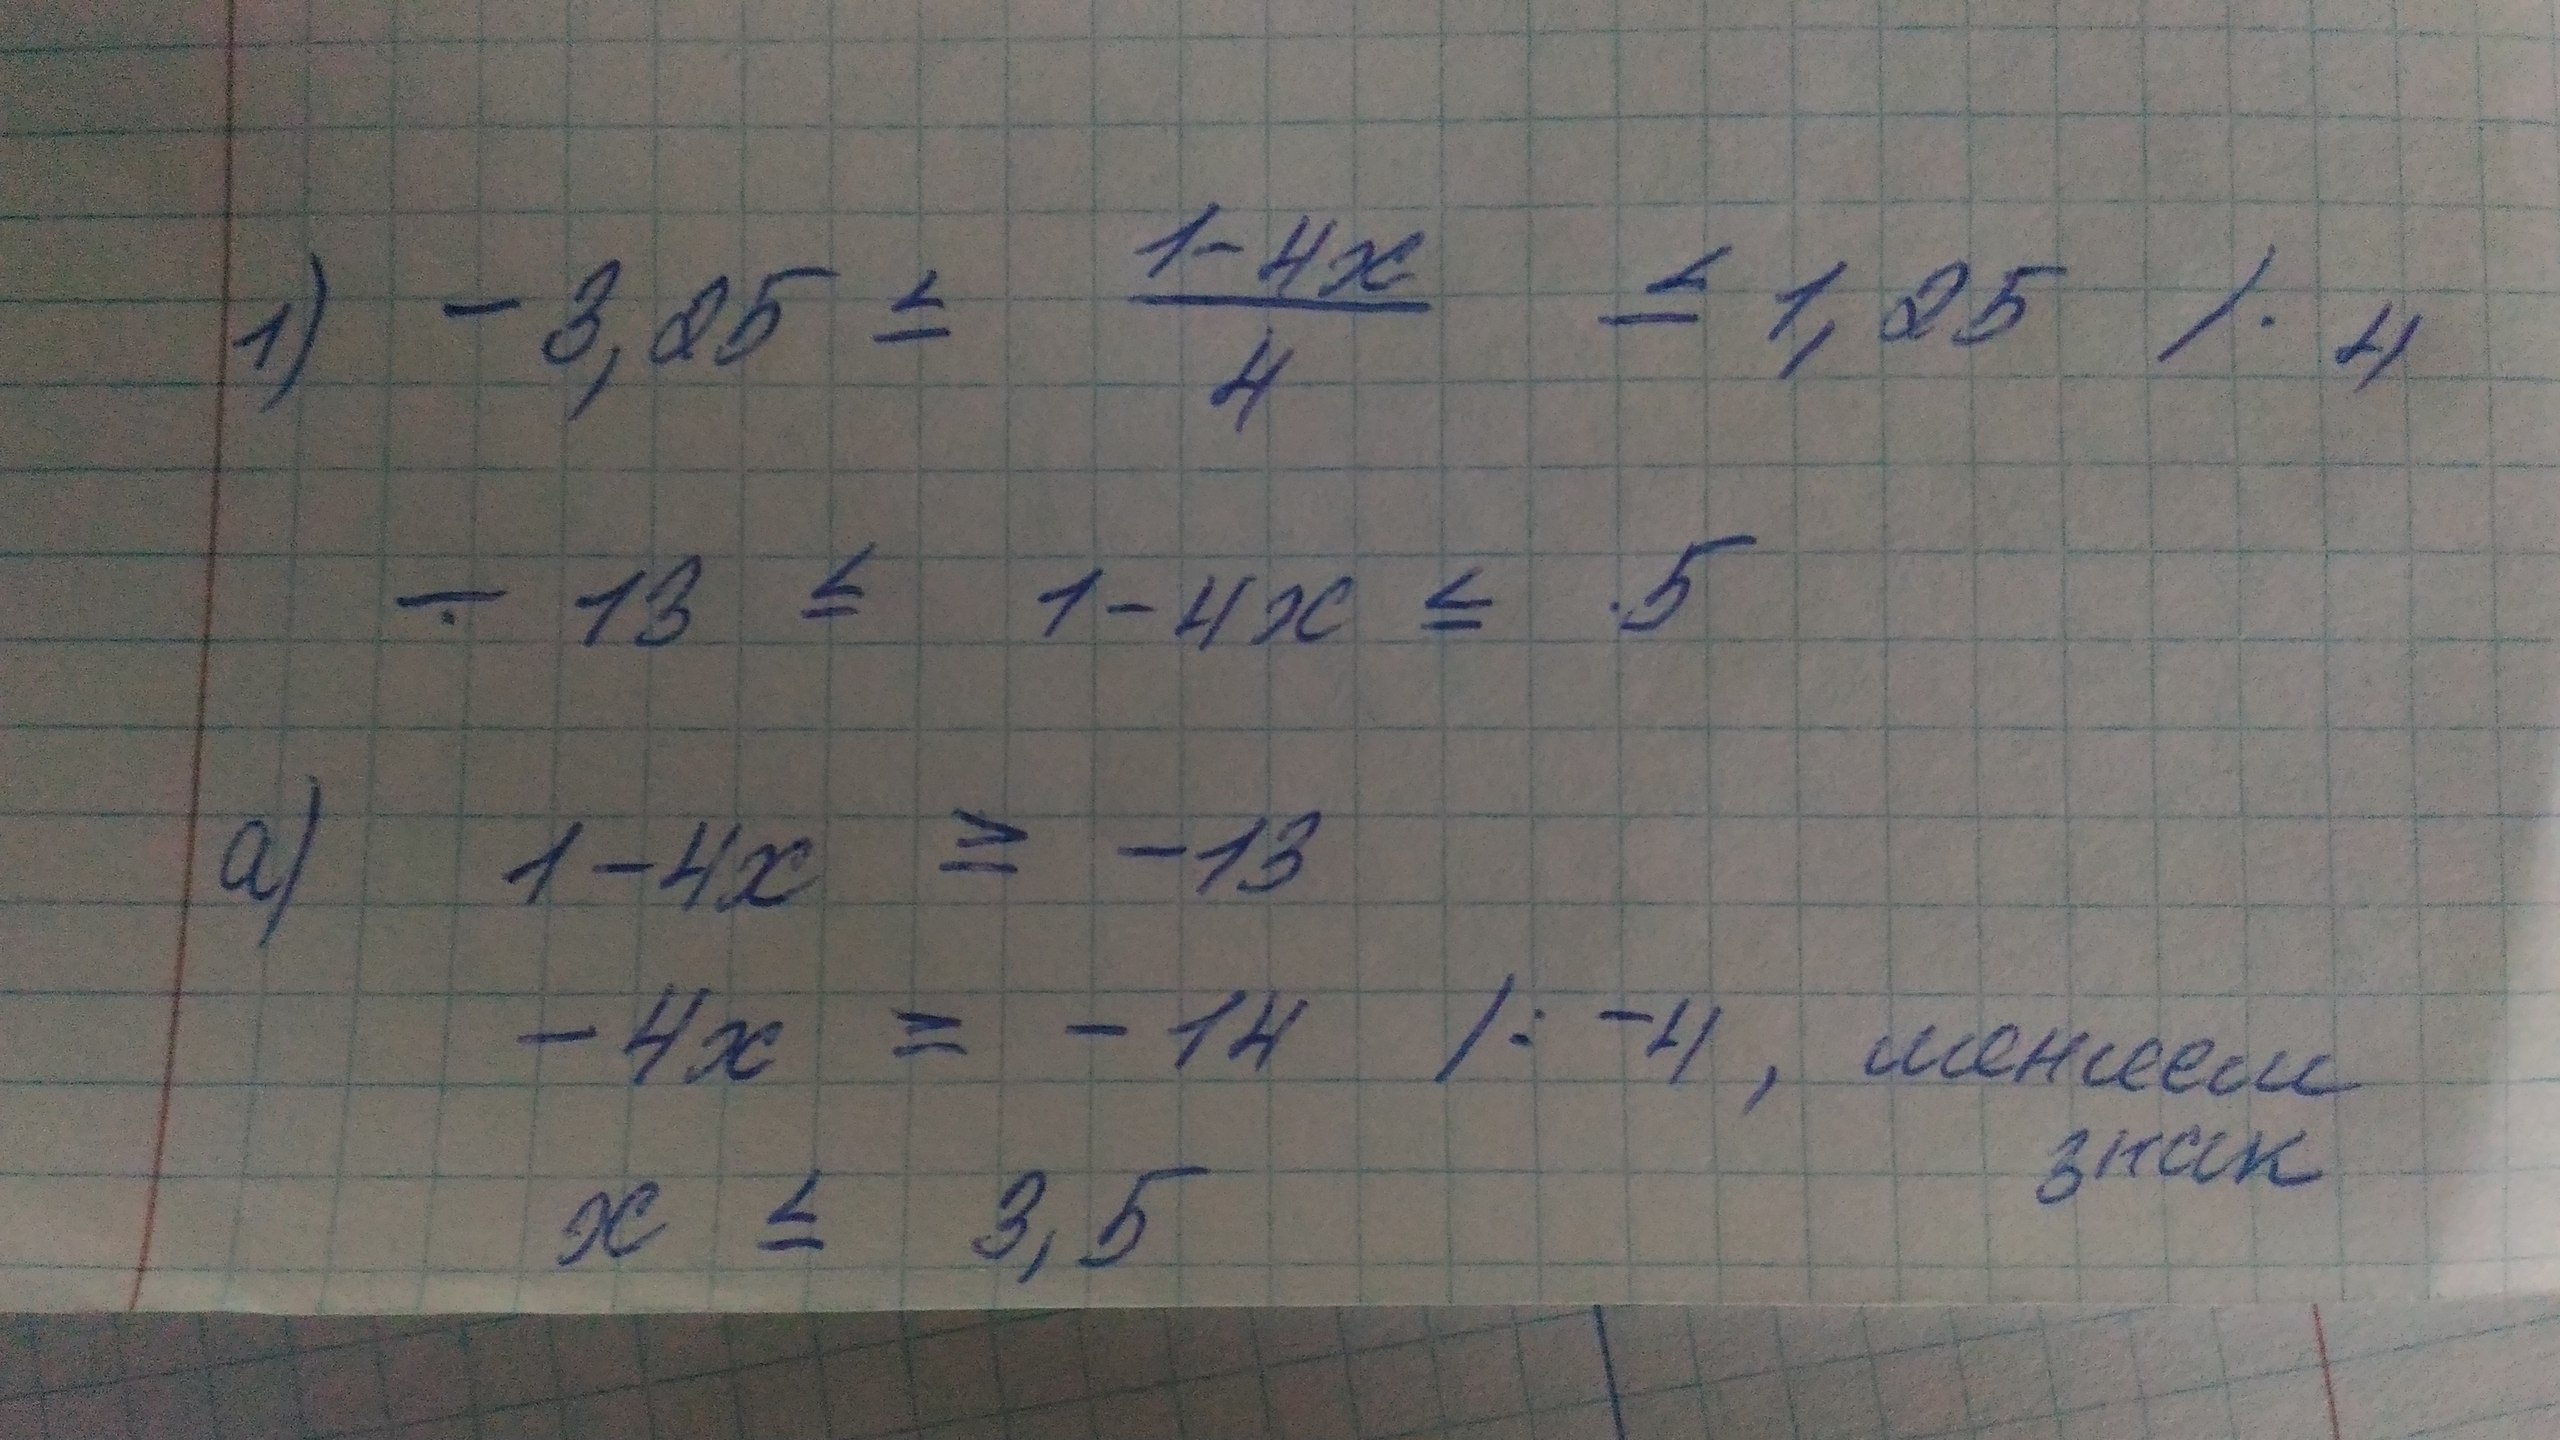 1) -3,25 ≤ (1-4x)/4 ≤ 1,25 /· 4
- 13 ≤ 1-4x ≤ 5
а) 1-4x ≥ -13
-4x ≥ -14 /: -4, меняем
знак
x ≤ 3,5